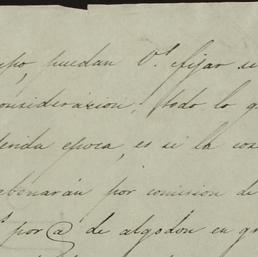 puedan V.s fijar se
consideracion: todo lo q
epoca, es si la cos
abonarán por comision de
por @ de algodón en